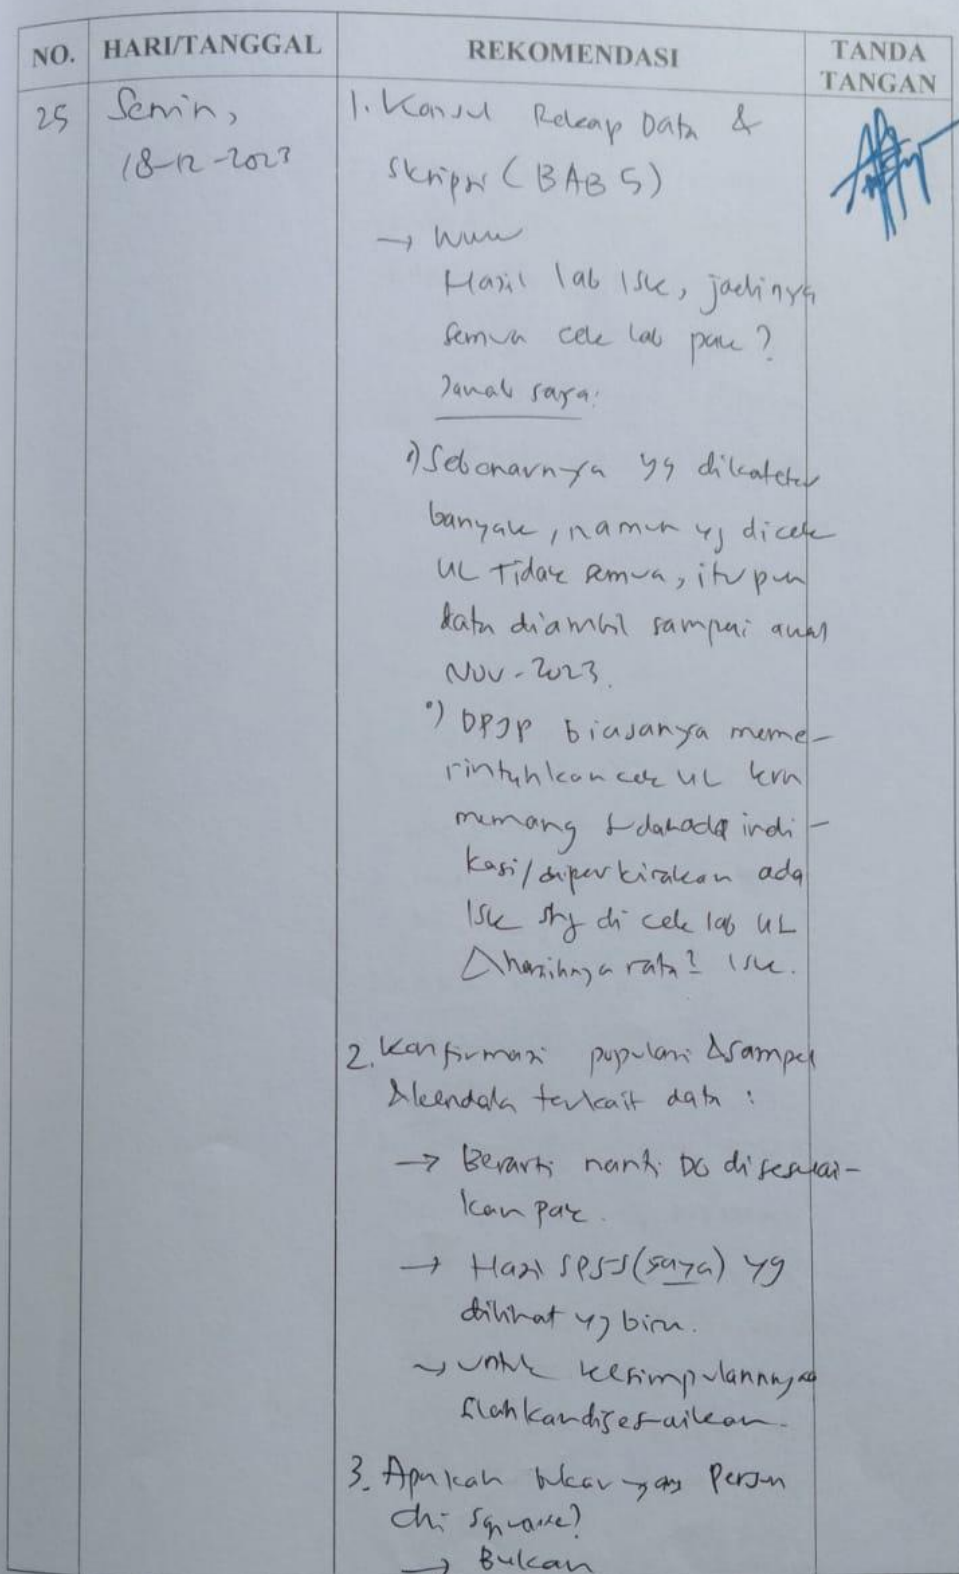 NO. HARI/TANGGAL REKOMENDASI TANDA TANGAN
25 Senin,
18-12-2023
1. Konsul Rekap Data &
Skripsi (BAB 5)
→ Wuw
Hasil lab ISK, jadinya
semua cek lab pak?
Jawab saya:
•) Sebenarnya yg dikateter
banyak, namun yg dicek
UL Tidak semua, itupun
data diambil sampai awal
Nov-2023.
•) DPJP biasanya meme-
rintahkan cek UL krn
memang sudah ada indi-
kasi/diperkirakan ada
ISK shg di cek lab UL
& hasilnya rata² ISK.
2. Konfirmasi populasi & sampel
& kendala terkait data :
→ Berarti nanti DO disesuai-
kan pak.
→ Hasil SPSS (saya) yg
dilihat yg biru.
→ untuk kesimpulannnya
silahkan disesuaikan.
3. Apakah bukannya Person
chi square?
→ Bukan